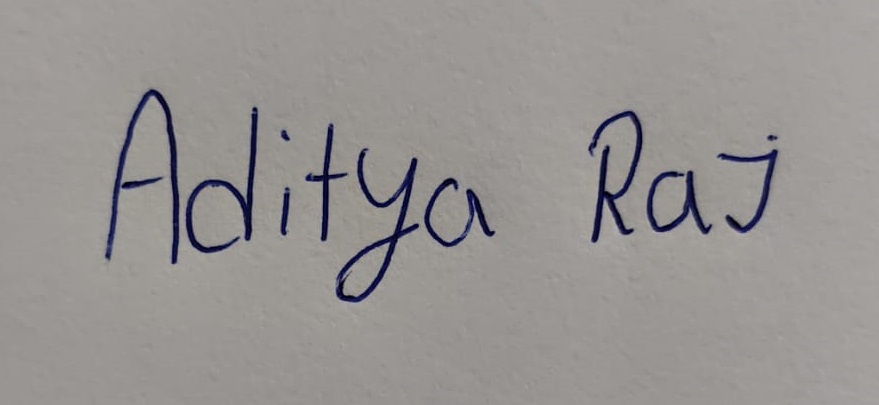 Aditya Raj